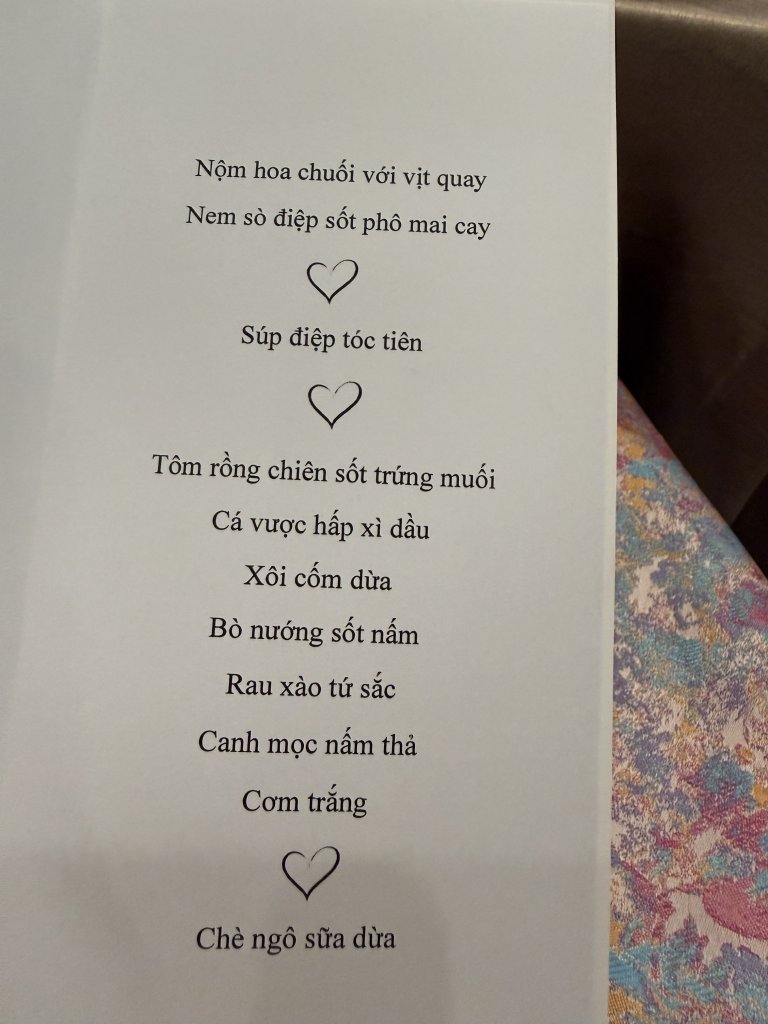 Nộm hoa chuối với vịt quay
Nem sò điệp sốt phô mai cay
Súp điệp tóc tiên
Tôm rồng chiên sốt trứng muối
Cá vược hấp xì dầu
Xôi cốm dừa
Bò nướng sốt nấm
Rau xào tứ sắc
Canh mọc nấm thả
Cơm trắng
Chè ngô sữa dừa